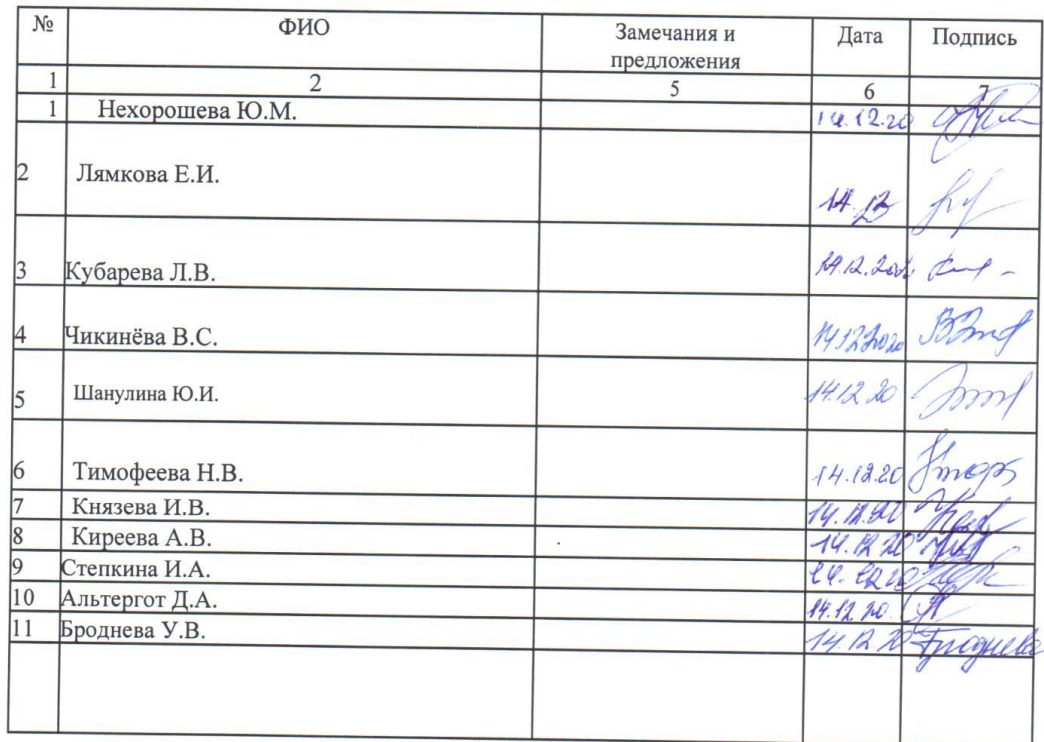 № ФИО Замечания и Дата Подпись
предложения
1 2 5 6 7
1 Нехорошева Ю.М. 14.12.20
2 Лямкова Е.И. 14.12
3 Кубарева Л.В.
4 Чикинёва В.С. 14.12.2020
5 Шанулина Ю.И. 14.12 20
6 Тимофеева Н.В. 14.12.20
7 Князева И.В. 14.12.20
8 Киреева А.В. 14.12 20
9 Степкина И.А. 14.12 20
10 Альтергот Д.А. 14.12 20.
11 Броднева У.В. 14.12 20 Броднева